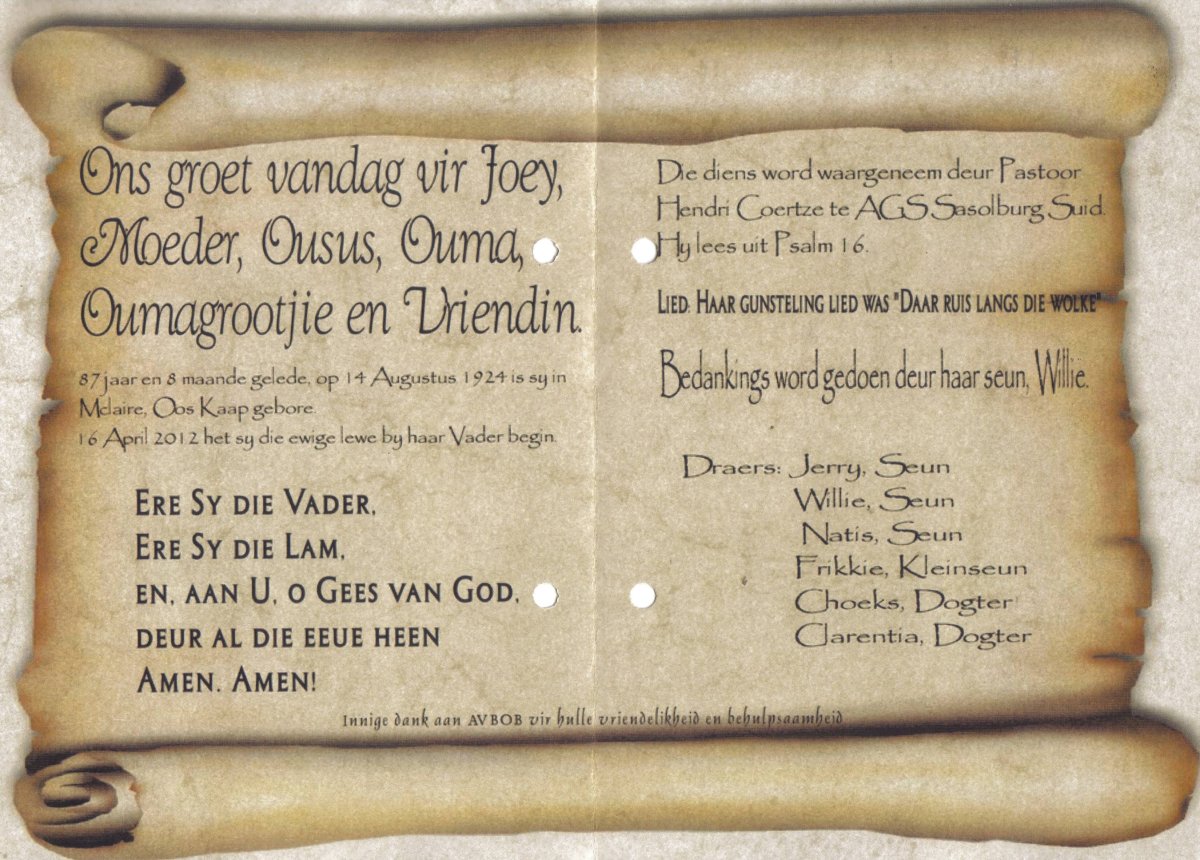 Ons groet vandag vir Joey,
Moeder, Ousus, Ouma,
Oumagrootjie en Vriendin.
87 jaar en 8 maande gelede, op 14 Augustus 1924 is sy in
Mclaire, Oos Kaap gebore.
16 April 2012 het sy die ewige lewe by haar Vader begin.
Ere Sy die Vader,
Ere Sy die Lam,
en, aan U, o Gees van God,
deur al die eeue heen
Amen. Amen!
Die diens word waargeneem deur Pastoor
Hendri Coertze te AGS Sasolburg Suid.
Hy lees uit Psalm 16.
Lied: Haar gunsteling lied was "Daar ruis langs die wolke"
Bedankings word gedoen deur haar seun, Willie.
Draers: Jerry, Seun
Willie, Seun
Natis, Seun
Frikkie, Kleinseun
Choeks, Dogter
Clarentia, Dogter
Innige dank aan AVBOB vir hulle vriendelikheid en behulpsaamheid